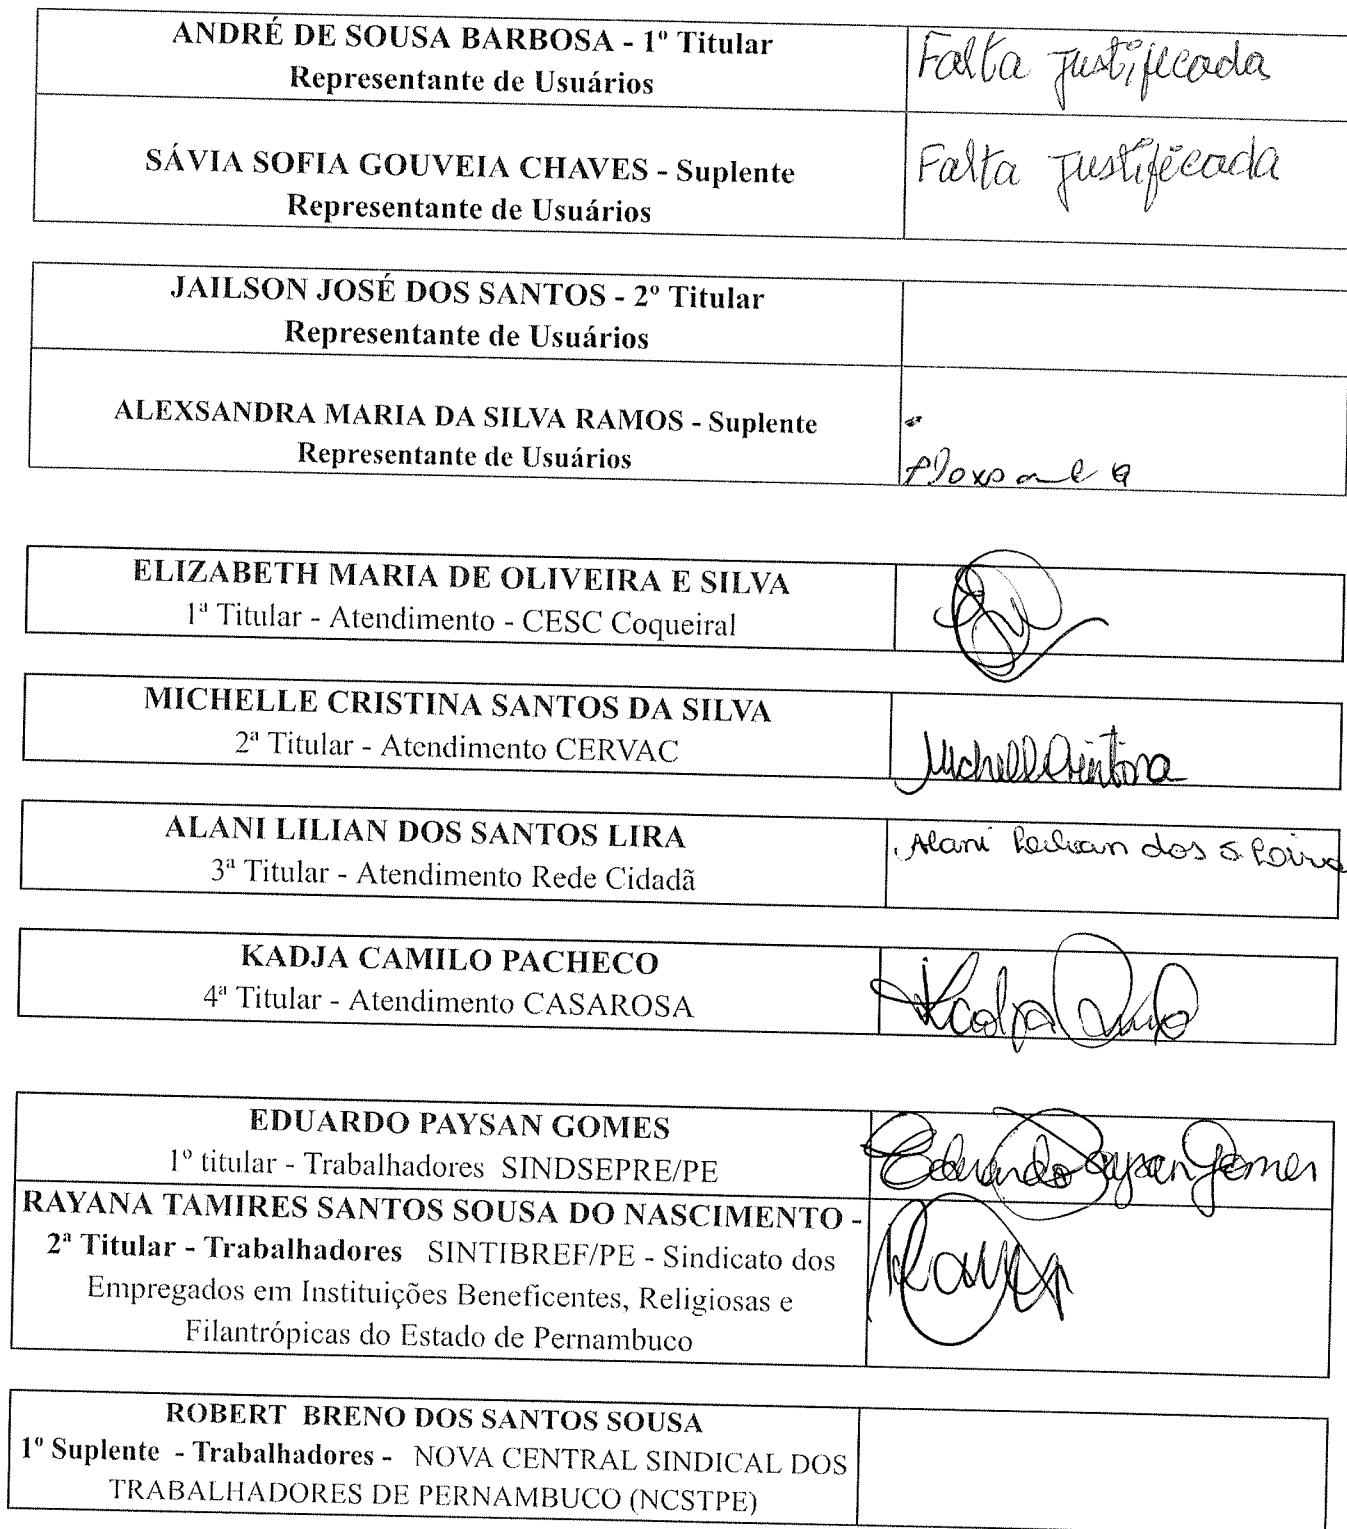 ANDRÉ DE SOUSA BARBOSA - 1º Titular
Representante de Usuários
Falta justificada
SÁVIA SOFIA GOUVEIA CHAVES - Suplente
Representante de Usuários
Falta justificada
JAILSON JOSÉ DOS SANTOS - 2º Titular
Representante de Usuários
ALEXSANDRA MARIA DA SILVA RAMOS - Suplente
Representante de Usuários
ELIZABETH MARIA DE OLIVEIRA E SILVA
1ª Titular - Atendimento - CESC Coqueiral
MICHELLE CRISTINA SANTOS DA SILVA
2ª Titular - Atendimento CERVAC
ALANI LILIAN DOS SANTOS LIRA
3ª Titular - Atendimento Rede Cidadã
Alani Lilian dos S. Lira
KADJA CAMILO PACHECO
4ª Titular - Atendimento CASAROSA
EDUARDO PAYSAN GOMES
1º titular - Trabalhadores SINDSEPRE/PE
Eduardo Paysan Gomes
RAYANA TAMIRES SANTOS SOUSA DO NASCIMENTO -
2ª Titular - Trabalhadores SINTIBREF/PE - Sindicato dos
Empregados em Instituições Beneficentes, Religiosas e
Filantrópicas do Estado de Pernambuco
ROBERT BRENO DOS SANTOS SOUSA
1º Suplente - Trabalhadores - NOVA CENTRAL SINDICAL DOS
TRABALHADORES DE PERNAMBUCO (NCSTPE)